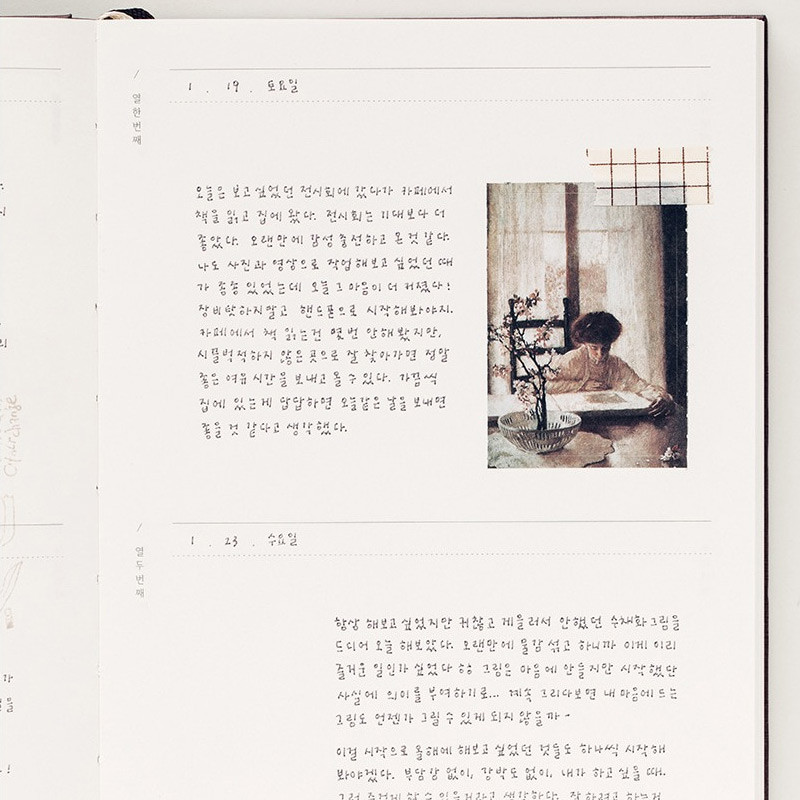 열한번째
1 . 19 . 토요일
오늘은 보고싶었던 전시회에 갔다가 카페에서
책을 읽고 집에 왔다. 전시회는 기대보다 더
좋았다. 오랜만에 감성 충전하고 온것 같다.
나도 사진과 영상으로 작업해보고 싶었던 때
가 종종 있었는데 오늘 그 마음이 더 커졌다!
장비탓하지말고 핸드폰으로 시작해봐야지.
카페에서 책 읽는건 몇번 안해봤지만,
시끌벅적하지 않은곳으로 잘 찾아가면 정말
좋은 여유시간을 보내고 올 수 있다. 가끔씩
집에 있는게 답답하면 오늘같은 날을 보내면
좋을것 같다고 생각했다.
Ctnerchange
열두번째
1 . 23 . 수요일
항상 해보고싶었지만 귀찮고 게을러서 안했던 수채화그림을
드디어 오늘 해보았다. 오랜만에 물감 섞고 하니까 이게 이리
즐거운 일인가 싶었다 하하 그림은 마음에 안들지만 시작했단
사실에 의의를 부여하기로... 계속 그리다보면 내 마음에 드는
그림도 언젠가 그릴 수 있게 되지 않을까-
이걸 시작으로 올해에 해보고 싶었던 것들도 하나씩 시작해
봐야겠다. 부담감 없이, 강박도 없이, 내가 하고 싶을 때.
그럼 즐겁게 할 수 있을거라고 생각한다. 잘 하려고 하는건